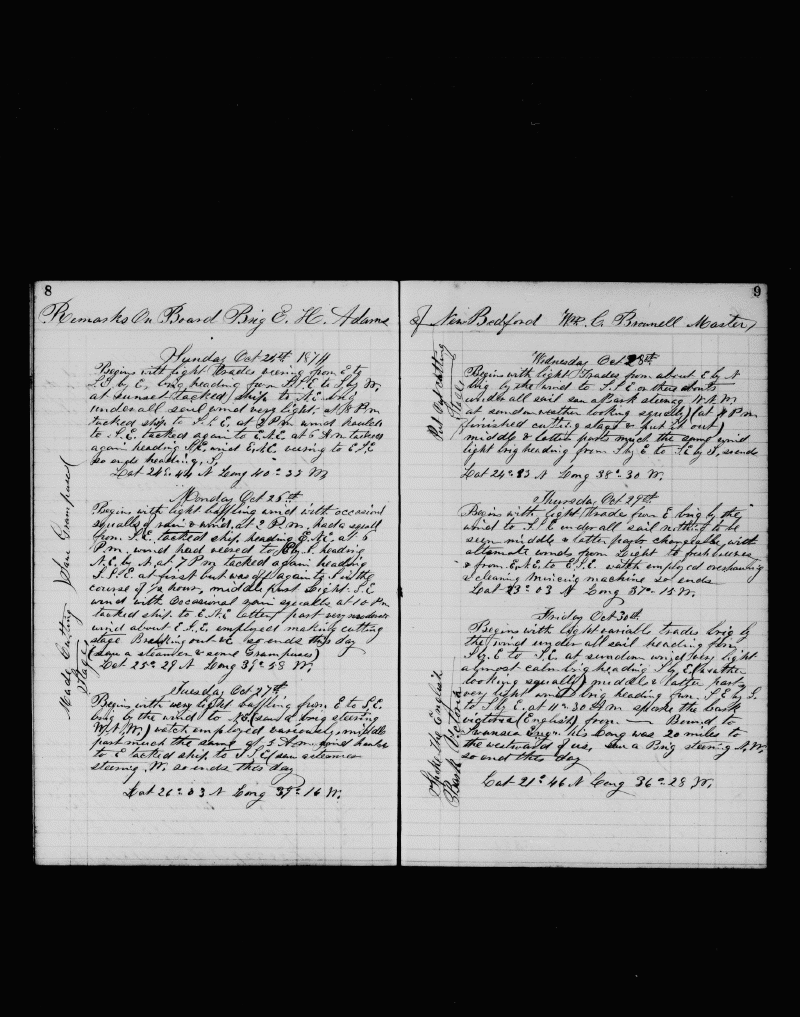 8
Remarks On Board Brig E. H. Adams
Sunday Oct 25th 1874
Begins with light Trades veering from E to
E by E, brig heading from S.S.E to S by W.
at sunset tacked ship to N.E. brig
under all sail wind very light. at 8 P.m
tacked ship to S.S.E. at 2 P.m wind hauled
to S.E. tacked again to E.N.E. at 6 A.m tacked
again heading S.E. wind E.N.E. veering to E.S.E
so ends heading S.
Lat 24°. 44 N Long 40° 22 W
Saw Grampuses
Monday Oct 26th
Begins with light baffling wind with occasional
squalls of rain & wind. at 2 P.m. had a squall
from S.E. tacked ship heading E.N.E. at 6
P.m. wind had veered to by S. heading
N.E. by N. at 7 P.m tacked again heading
S.S.E. at first but was off again to S in the
course of 1/2 hour, middle part Light S.E
wind with occasional rain squalls at 10 P.m
tacked ship to E.N.E latter part very moderate
wind about E.S.E. employed making cutting
stage Breaking out &c so ends this day
(saw a steamer & some Grampuses)
Lat 25° 29 N Long 39° 58 W.
Made Cutting
Stage
Tuesday Oct 27th
Begins with very light baffling from E to S.E.
brig by the wind to N.E (saw a brig steering
W.N.W.) watch employed variously, middle
part much the same at 5 A.m wind hauled
to E tacked ship to S by E (saw a steamer
steering W. so ends this day
Lat 26° 03 N Long 39° 16 W.
9
of New Bedford Wm. C. Brownell Master
Put Out cutting
Stage
Wednesday Oct 28th
Begins with light Trades from about E by N
brig by the wind to S.S.E or there abouts
under all sail saw a Bark steering W.N.W.
at sundown weather looking squally (at 4 P.m
finished cutting stage & put it out)
middle & latter parts much the same wind
light brig heading from S by E to S.E by S. so ends
Lat 24° 23 N Long 38° 30 W.
Thursday Oct 29th
Begins with light Trades from E brig by the
wind to S.S.E under all sail nothing to be
seen middle & latter parts changeable with
alternate winds from Light to fresh breezes
& from E.N.E. to E.S.E. watch employed overhauling
& cleaning mincing machine so ends
Lat 23° 03 N Long 37° 15 W.
Friday Oct 30th
Begins with light variable trades brig by
the wind under all sail heading from
S by E to S.E at sundown wind very light
almost calm brig heading S by E (weather
looking squally) middle & latter parts
very light wind brig heading from S.E by S.
to S by E. at 11-30 A.m spoke the bark
Victoria (English) from — Bound to
Swansea Eng. his Long was 20 miles to
the westward of us. saw a Brig steering N.W.
so end this day
Lat 21° 46 N Long 36° 28 W.
Spoke the English
Bark Victoria